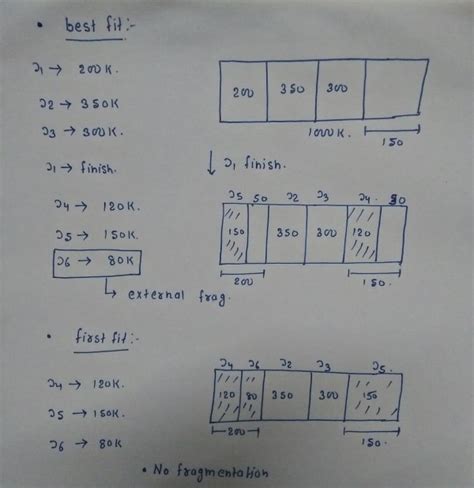 • best fit:-
J1 → 200K.
J2 → 350K
J3 → 300K.
J1 → finish.
J4 → 120K.
J5 → 150K.
J6 → 80K
↳ external frag.
200 350 300
1000K. 150
↓ J1 finish.
J5 50 J2 J3 J4 30
150 350 300 120
200 150
• first fit:-
J4 → 120K.
J5 → 150K.
J6 → 80K
J4 J6 J2 J3 J5.
120 80 350 300 150
200 150
• No fragmentation